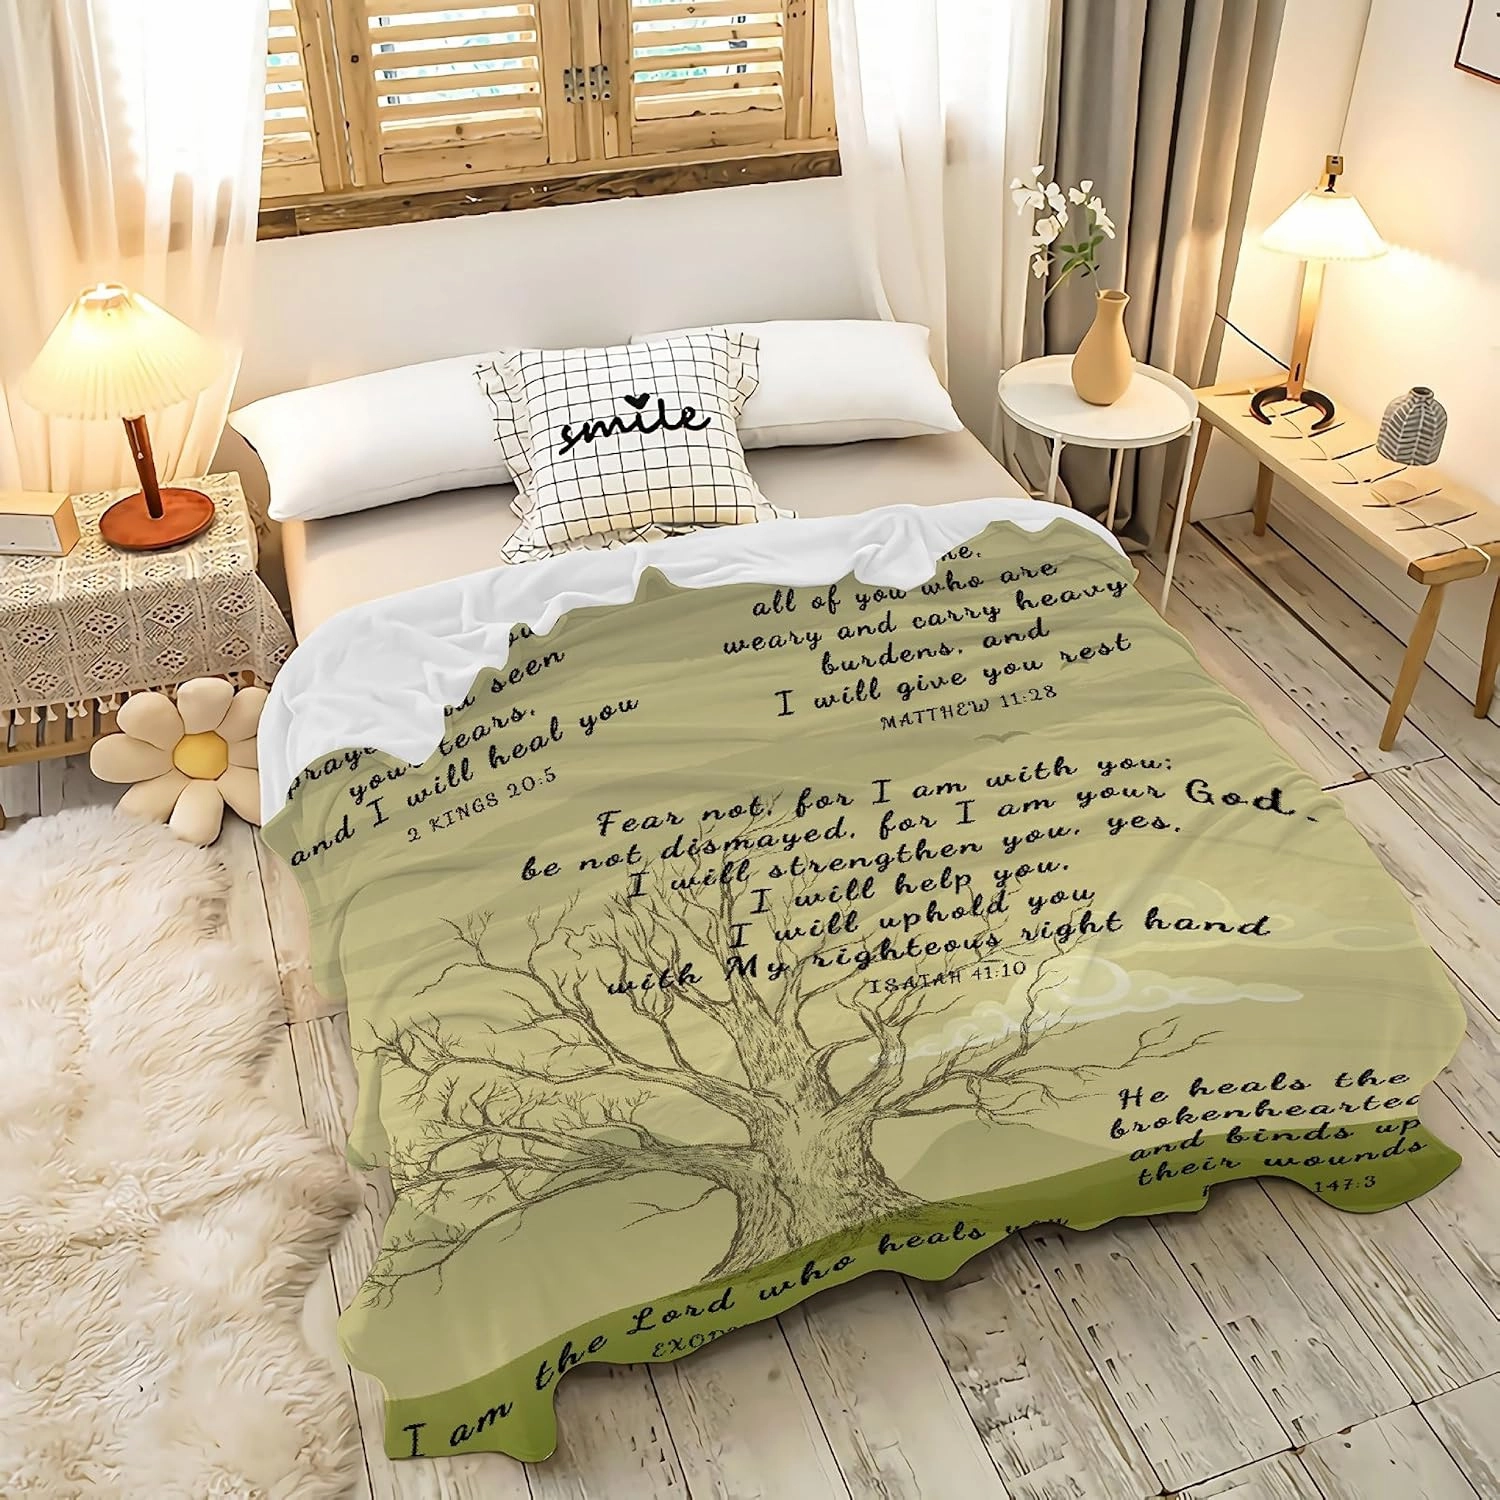 smile
seen
your tears.
and I will heal you
2 KINGS 20:5
all of you who are
weary and carry heavy
burdens, and
I will give you rest
MATTHEW 11:28
Fear not, for I am with you;
be not dismayed, for I am your God.
I will strengthen you, yes,
I will help you.
I will uphold you
with My righteous right hand
ISAIAH 41:10
He heals the
brokenhearted
and binds up
their wounds
147:3
I am the Lord who heals you